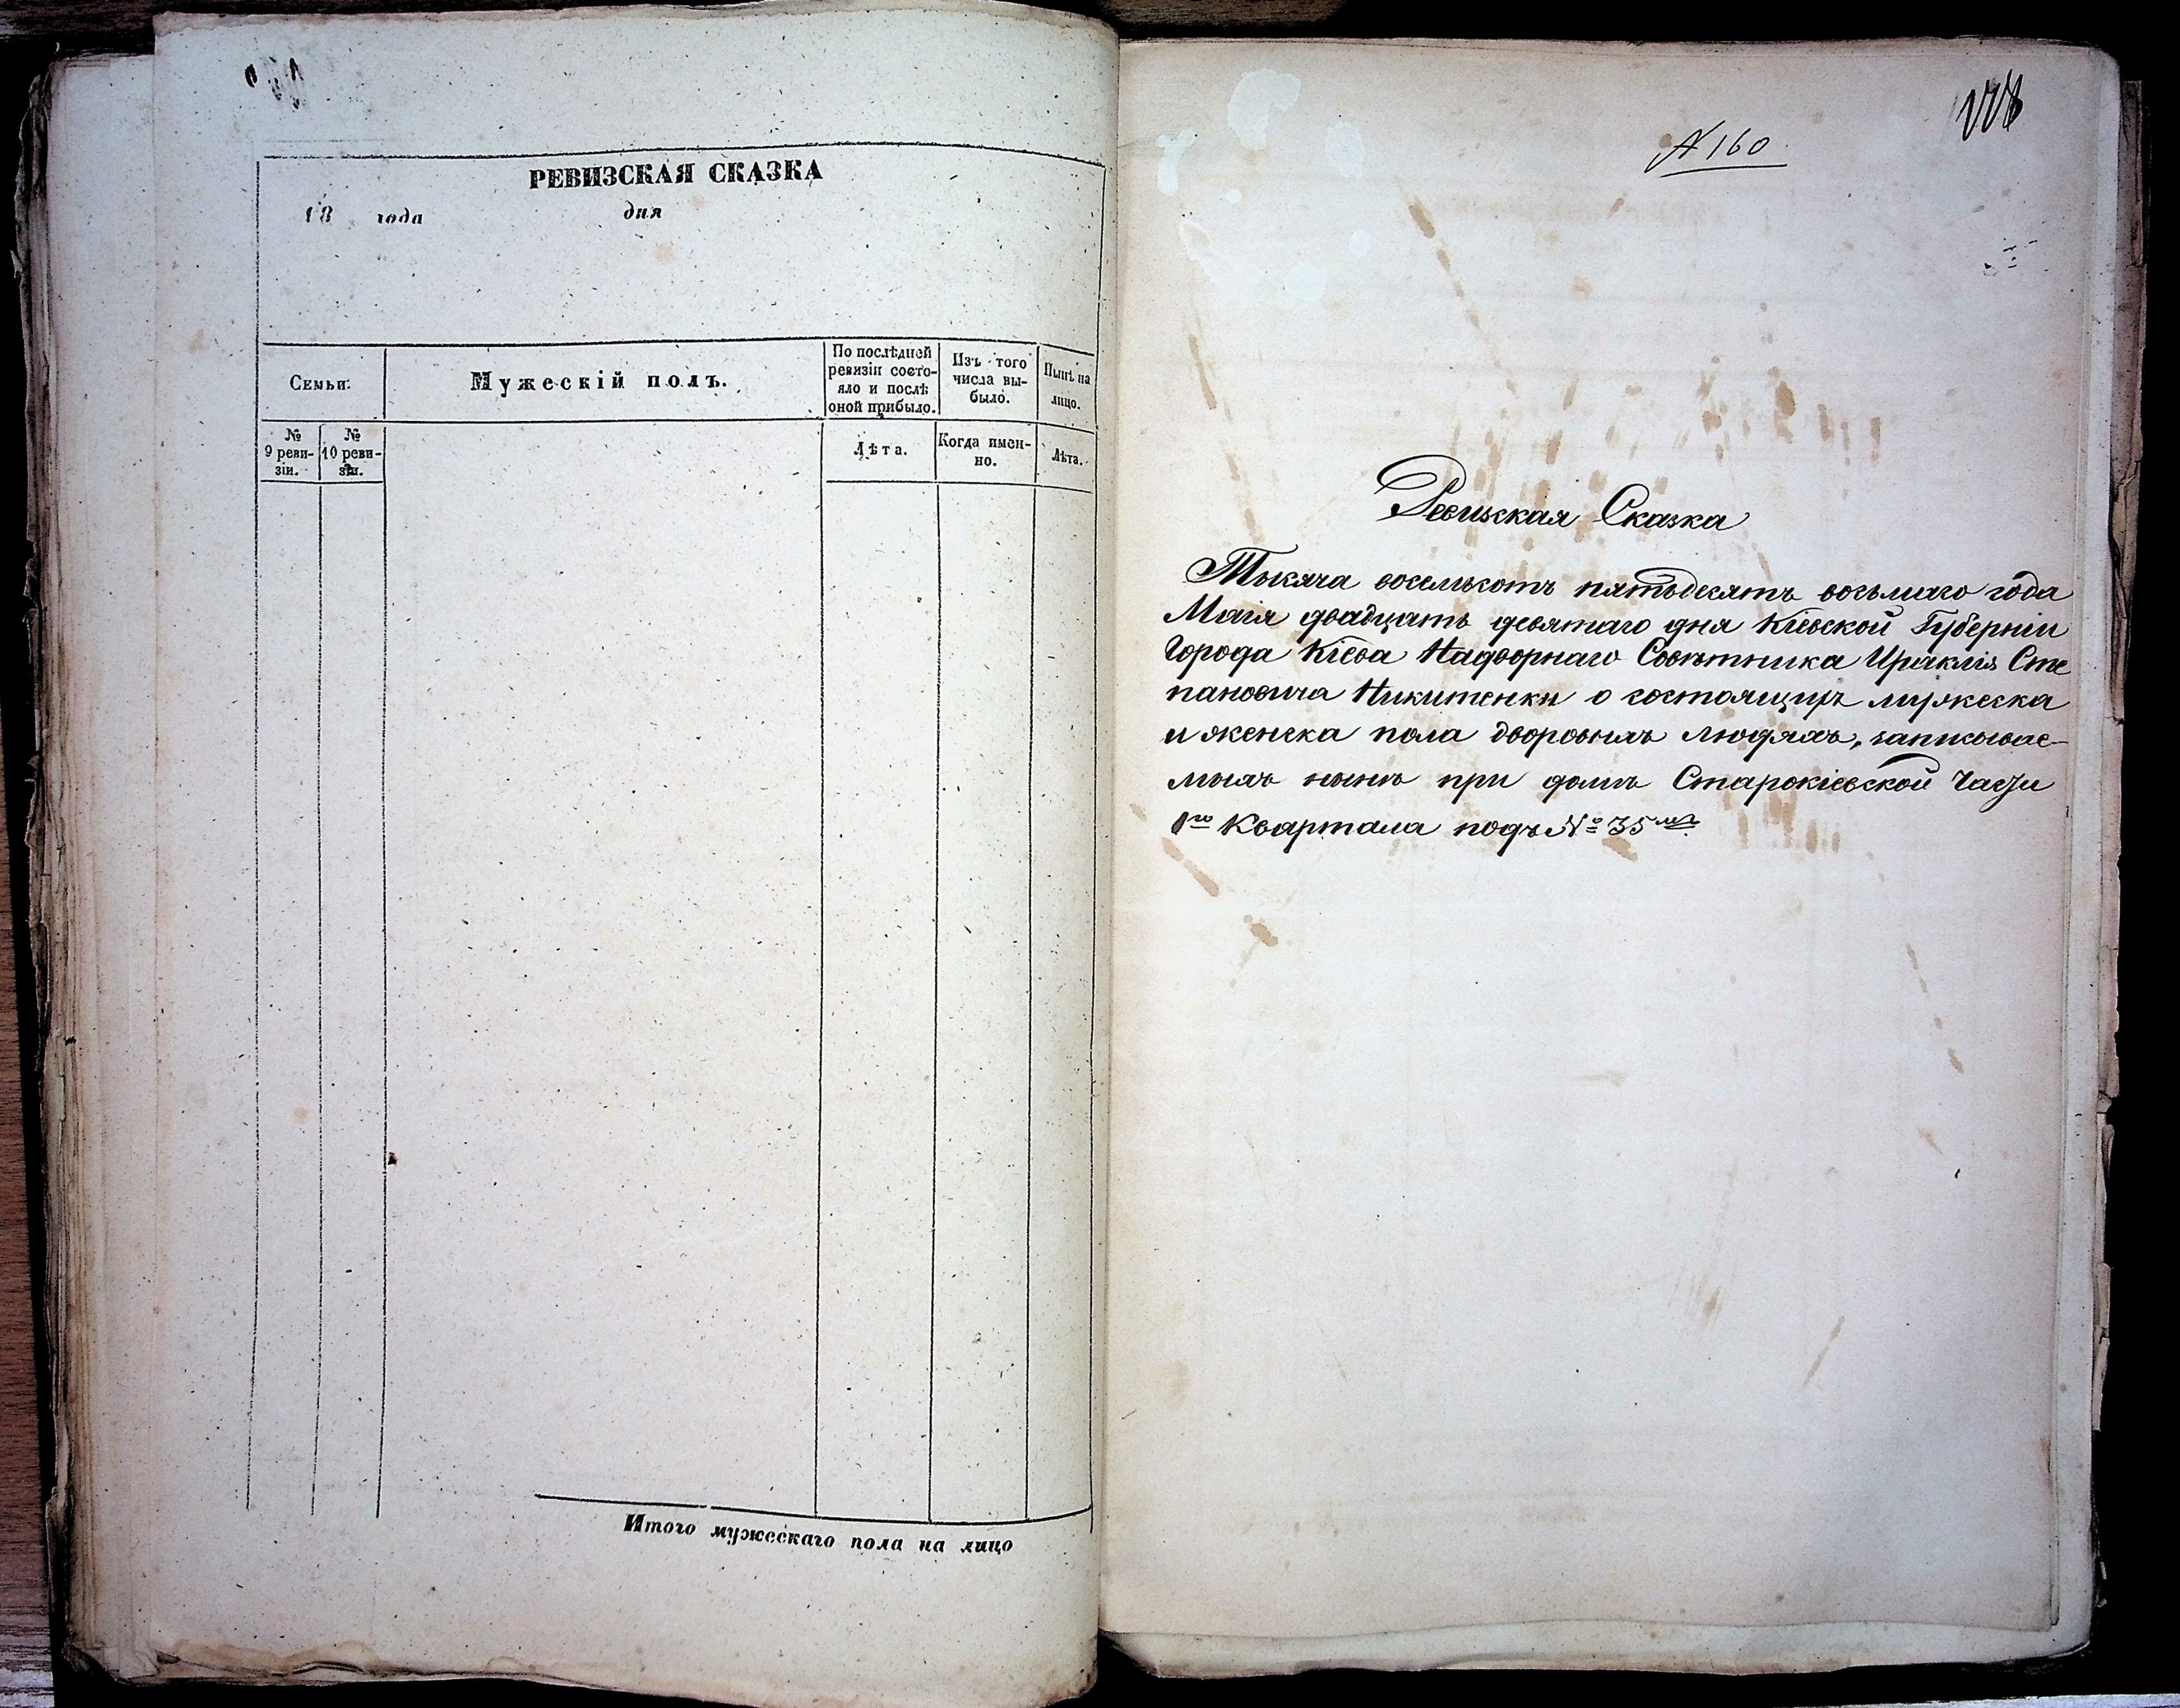 РЕВИЗСКАЯ СКАЗКА
18 года дня
Семьи.
Мужескій полъ.
По послѣдней
ревизіи состо-
яло и послѣ
оной прибыло.
Изъ того
числа вы-
было.
Нынѣ на
лицо.
№
9 реви-
зіи.
№
10 реви-
зіи.
Лѣта.
Когда имен-
но.
Лѣта.
Итого мужескаго пола на лицо
№ 160
Ревизская Сказка
Тысяча восемьсотъ пятьдесятъ восьмаго года
Маія двадцать девятаго дня Кіевской Губерніи
Города Кіева Надворнаго Совѣтника Ираклія Сте
пановича Никитенки о состоящихъ мужеска
и женска пола дворовыхъ людяхъ, записывае-
мыхъ нынѣ при домѣ Старокіевской Части
1го Квартала подъ № 35мъ.